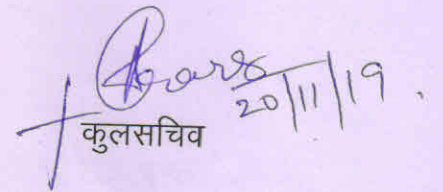 20/11/19.
कुलसचिव